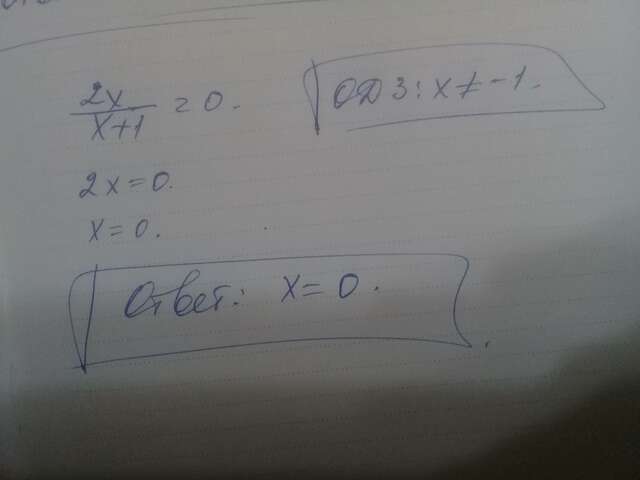 2x/x+1 = 0.
ОДЗ: x ≠ -1.
2x = 0.
x = 0.
Ответ: x = 0.